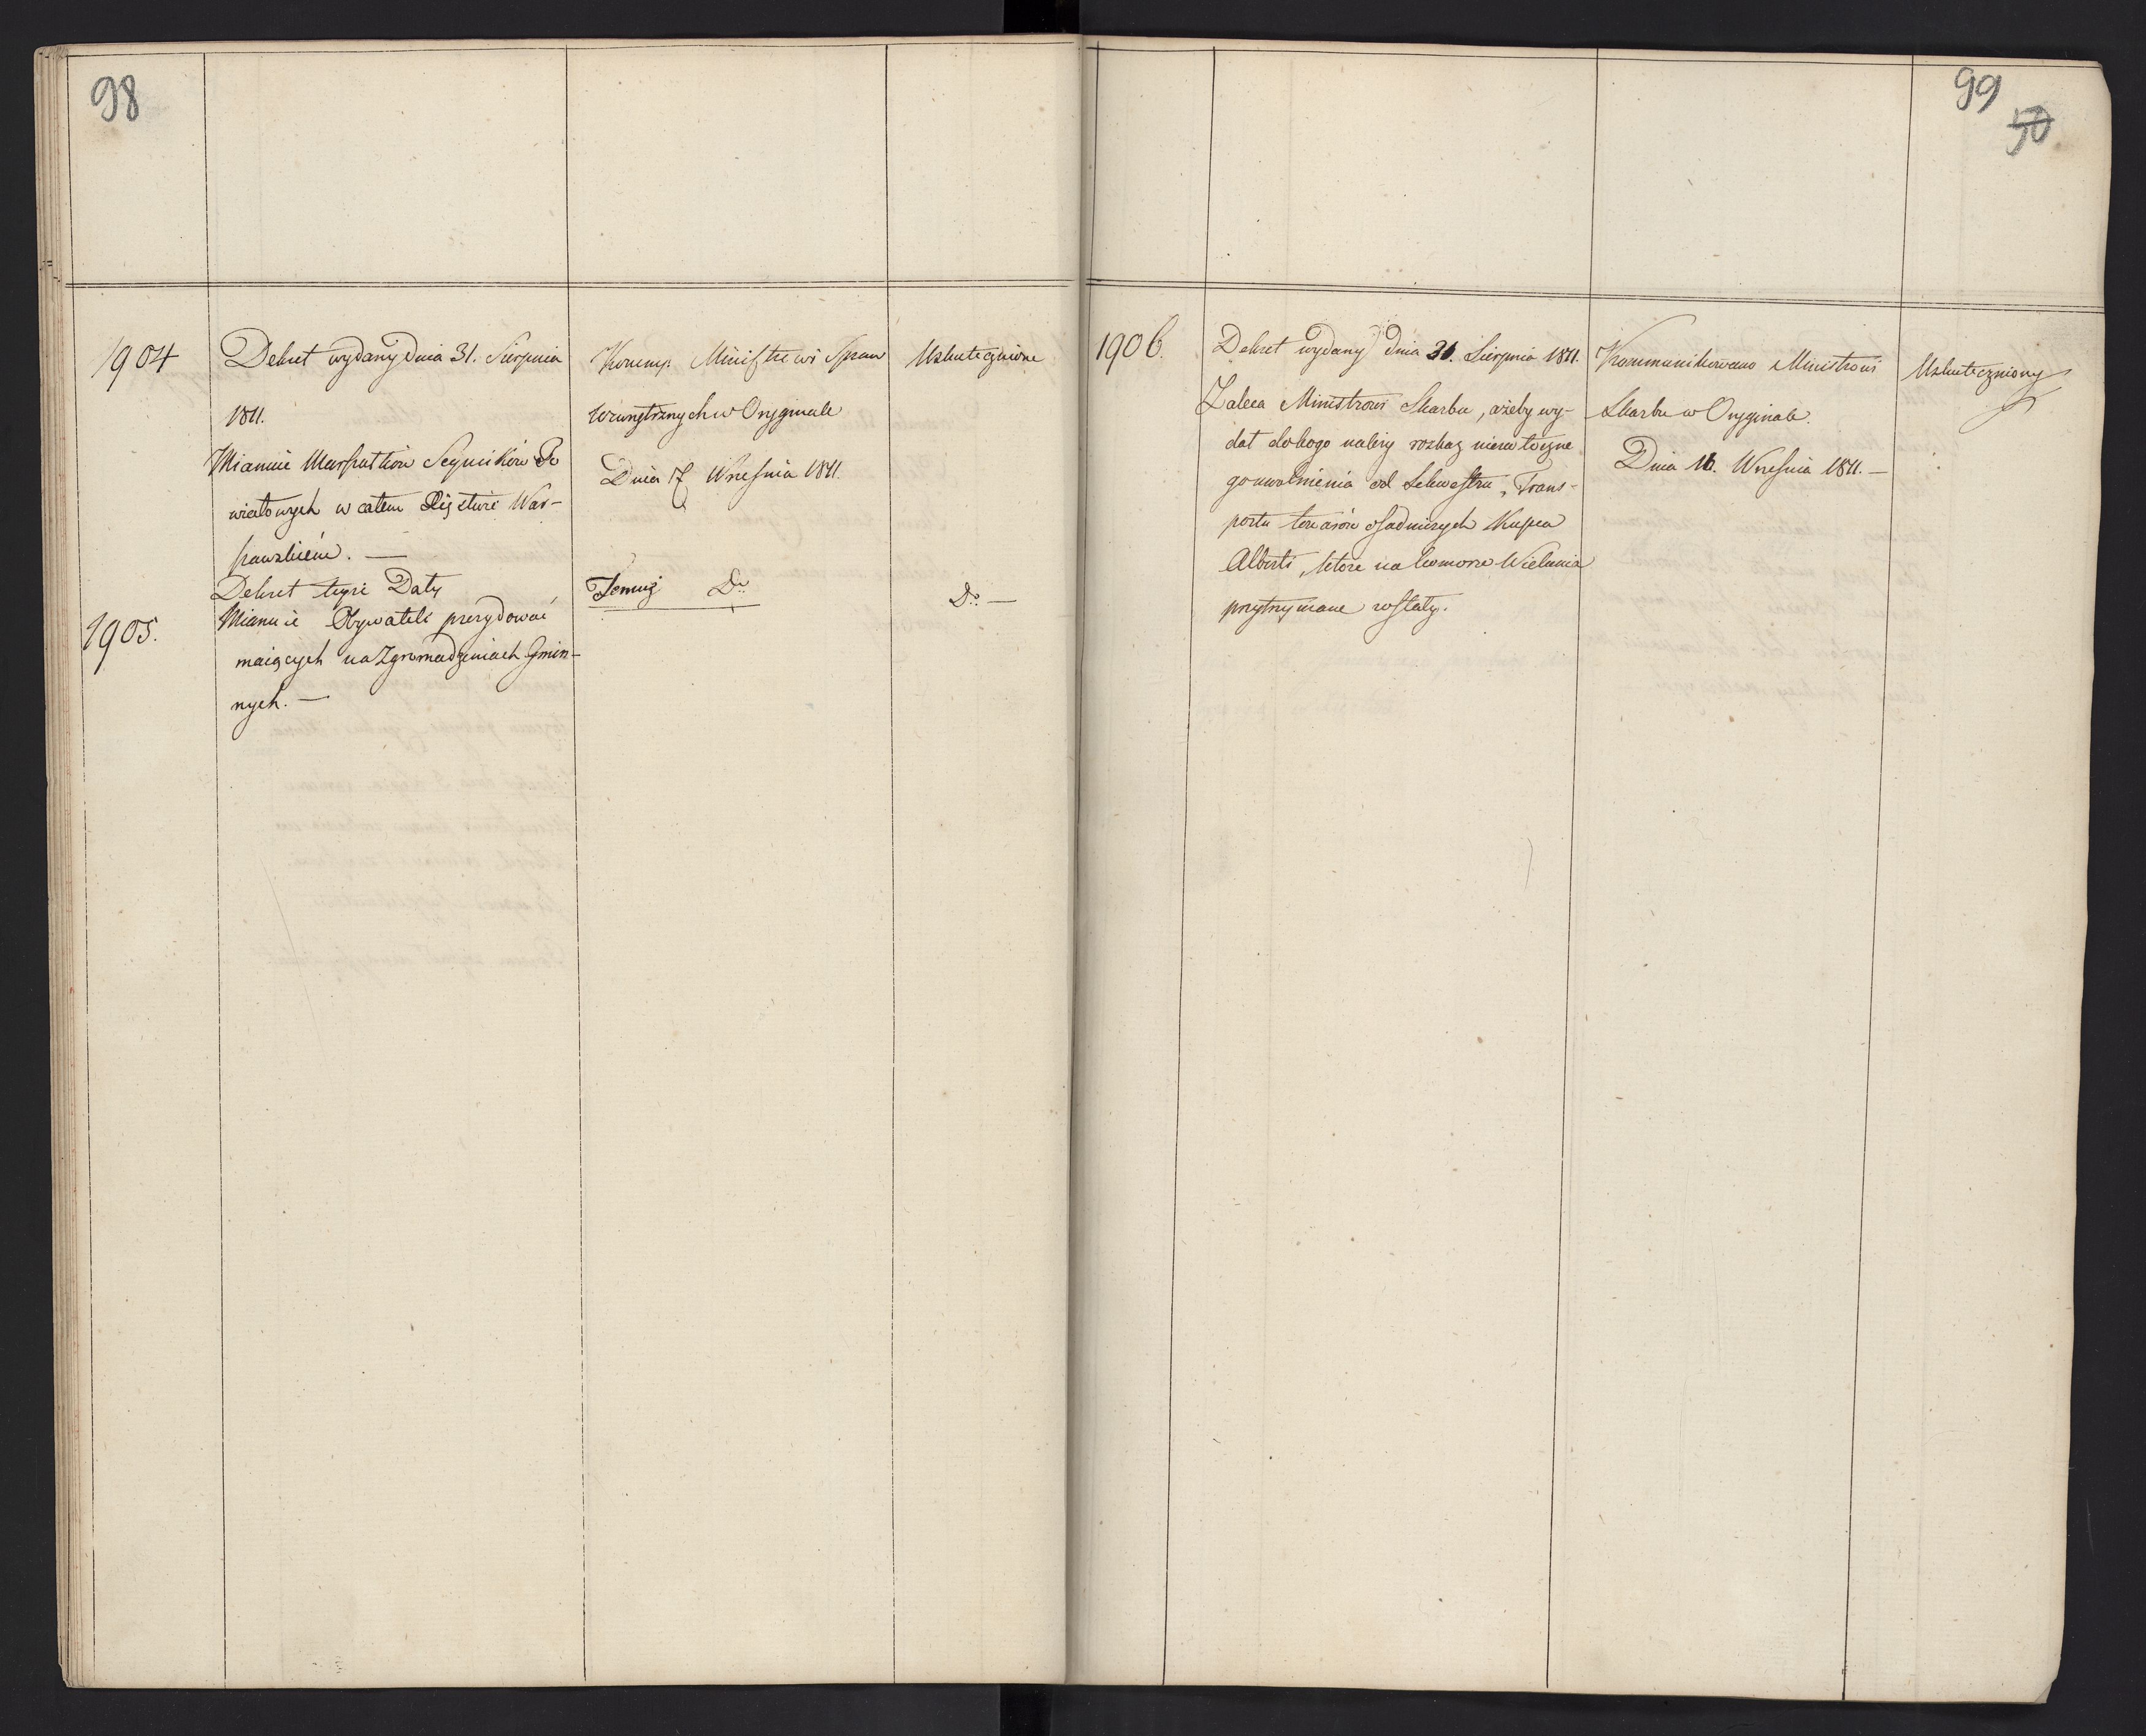 98
1904
Dekret wydany Dnia 31. Sierpnia
1811.
Mianuie Marszałków Seymików Po
wiatowych w całem Xięstwie War-
szawskiem. —
Komunik. Ministrowi Spraw
Wewnętrznych w Oryginale
Dnia 17 Września 1811.
Uskutecznione
1905.
Dekret teyże Daty
Mianuie Obywateli prezydować
maiących na Zgromadzeniach Gmin-
nych. —
Temuż Do
Do —
99
50
1906.
Dekret wydany dnia 31. Sierpnia 1811.
Zaleca Ministrowi Skarbu, ażeby wy-
dał do kogo należy rozkaz niezwłoczne
go uwolnienia od Sekwestru, Trans-
portu towarów osadniczych Kupca
Alberti, które na komorze Wielunia
przytrzymane zostały.
Kommunikowano Ministrowi
Skarbu w Oryginale.
Dnia 16. Września 1811. —
Uskuteczniony